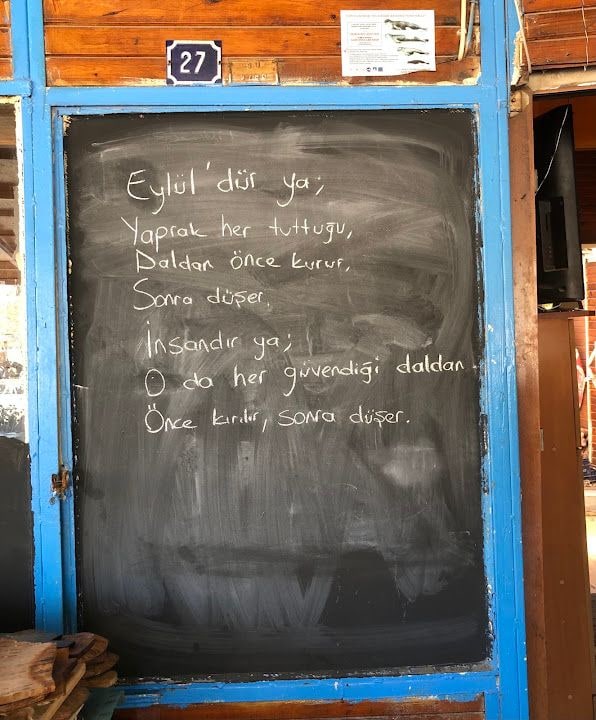 27
Eylül'dür ya;
Yaprak her tuttuğu,
Daldan önce kurur,
Sonra düşer.
İnsandır ya;
O da her güvendiği daldan.
Önce kırılır, sonra düşer.